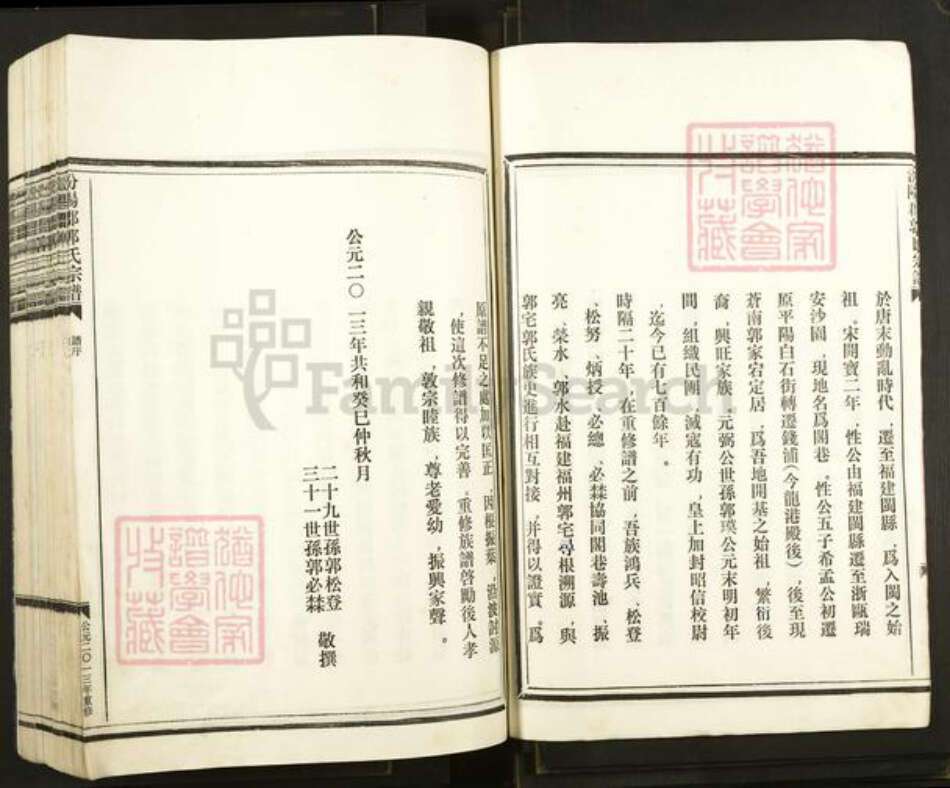 於唐末動亂時代，遷至福建閩縣，爲入閩之始
祖。宋開寶二年，性公由福建閩縣遷至浙甌瑞
安沙園，現地名爲閣巷。性公五子希孟公初遷
原平陽白石街轉遷錢浦（今龍港殿後），後至現
蒼南郭家宕定居，爲吾地開基之始祖，繁衍後
裔，興旺家族。元弼公世孫郭瑛公元末明初年
間，組織民團，滅寇有功，皇上加封昭信校尉
，迄今已有七百餘年。
時隔二十年，在重修譜之前，吾族鴻兵、松登
、松努、炳授、必總、必棽協同閣巷壽池、振
亮、榮水、郭水赴福建福州郭宅尋根溯源，與
郭宅郭氏族史進行相互對接，并得以證實。爲
原譜不足之處加以匡正，因根振葉，沿波討源
，使這次修譜得以完善。重修族譜啓勵後人孝
親敬祖，敦宗睦族，尊老愛幼，振興家聲。
公元二〇一三年共和癸巳仲秋月
二十九世孫郭松登
三十一世孫郭必棽
敬撰
汾陽郡郭氏宗譜
譜序
公元二〇一三年重修
FamilySearch
猶他家譜學會收藏
猶他家譜學會收藏